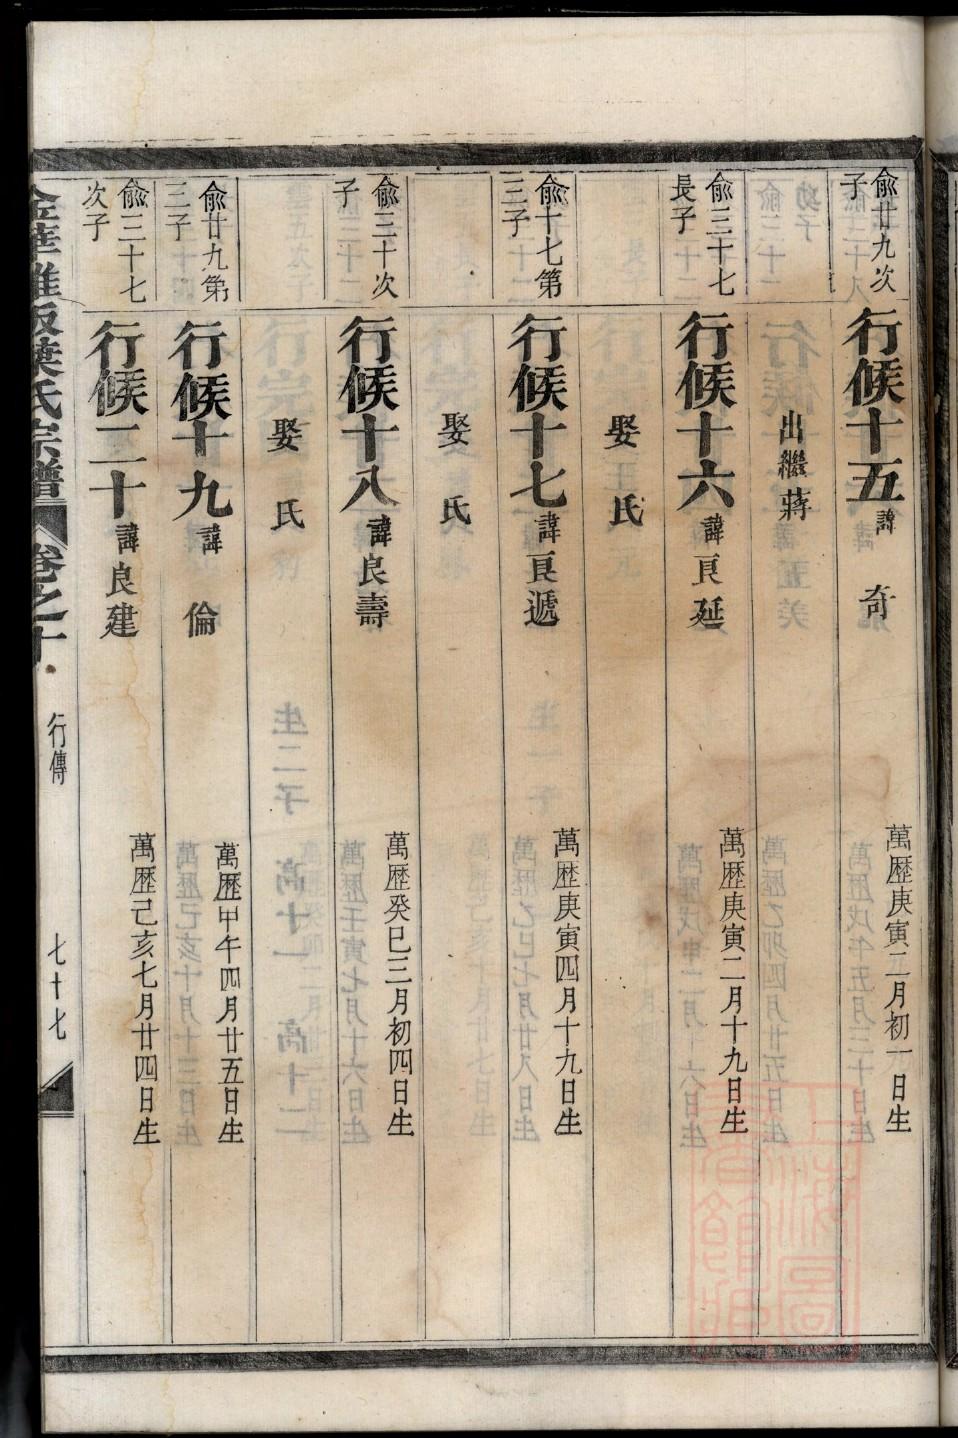 俞廿九次
子
行候十五諱　奇
萬歴庚寅二月初一日生
出繼蔣
俞三十七
長子
行候十六諱良延
萬歴庚寅二月十九日生
娶　氏
俞十七第
三子
行候十七諱良遞
萬歴庚寅四月十九日生
娶　氏
俞三十次
子
行候十八諱良壽
萬歴癸巳三月初四日生
娶　氏
俞廿九第
三子
行候十九諱　倫
萬歴甲午四月廿五日生
俞三十七
次子
行候二十諱良建
萬歴己亥七月廿四日生
葉氏宗譜　卷之十　行傳　七十七